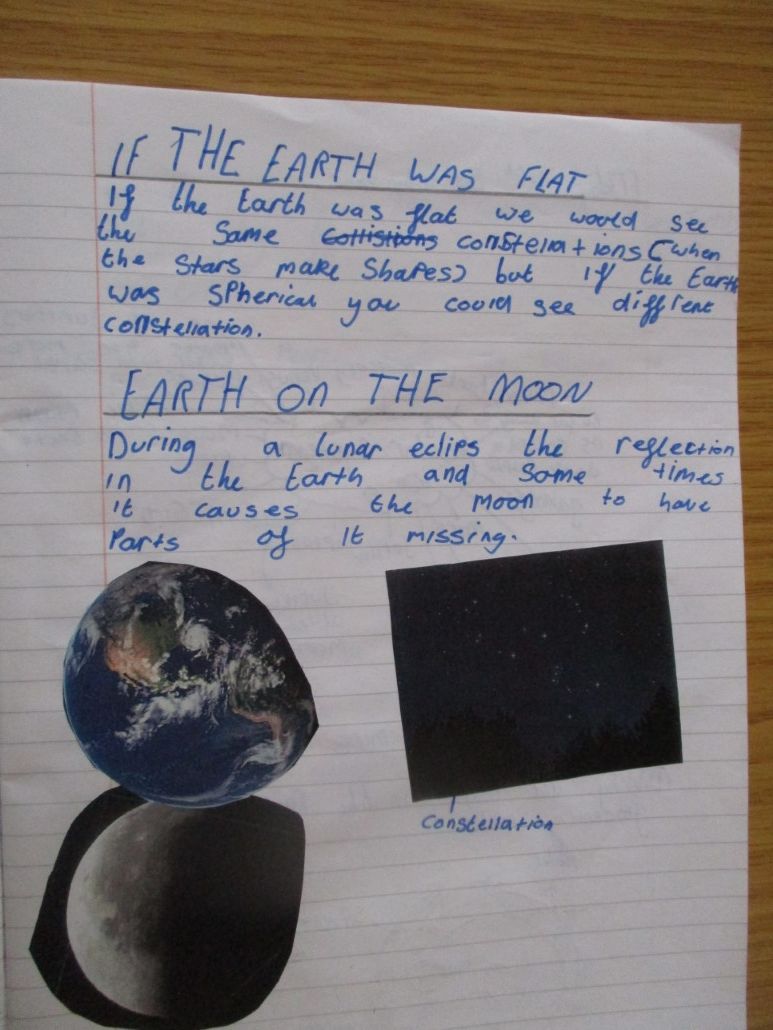 IF THE EARTH WAS FLAT
If the Earth was flat we would see
the same collisions constellations (when
the stars make shapes) but if the Earth
was spherical you could see diffrent
constellation.
EARTH ON THE MOON
During a lunar eclips the reflection
in the Earth and some times
it causes the moon to have
parts of it missing.
constellation